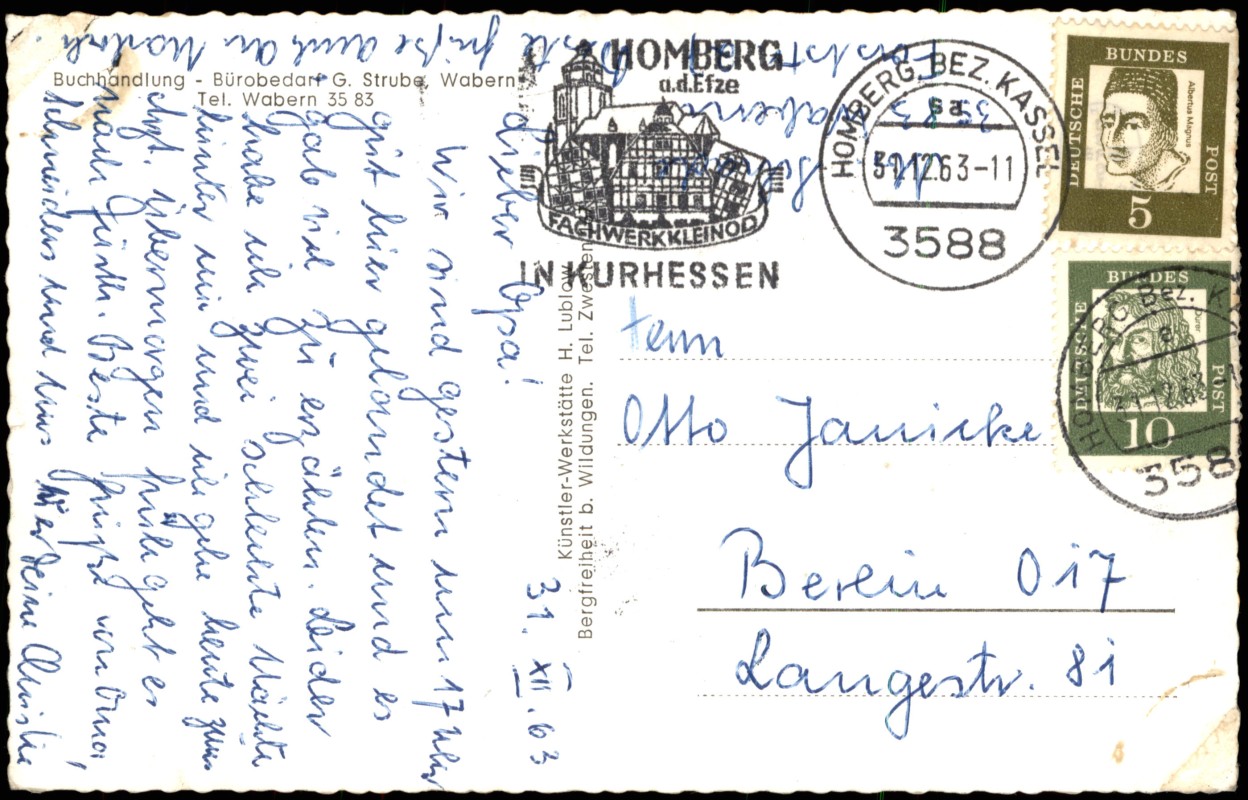 Buchhandlung - Bürobedarf G. Strube, Wabern
Tel. Wabern 35 83
31. XII. 63
Lieber Opa!
Wir sind gestern um 17 Uhr
gut hier gelandet und es
gab viel zu erzählen. Leider
habe ich zwei schlechte Nächte
hinter mir und ich gehe heute zum
Arzt. Übermorgen früh geht es
nach Fürth. Beste Grüße von Oma,
Schneiders und uns hier Deine Christa
Beste Grüße auch an
Künstler-Werkstätte H. Lublow
Bergfreiheit b. Wildungen. Tel. Zwesten
3583 Wabern
HOMBERG
a.d.Efze
FACHWERKKLEINOD
IN KURHESSEN
HOMBERG, BEZ. KASSEL
31.12.63-11
3588
DEUTSCHE BUNDES POST
Albertus Magnus
5
DEUTSCHE BUNDES POST
10
HOMBERG Bez. K
358
Herrn
Otto Janicke
Berlin O 17
Langestr. 81